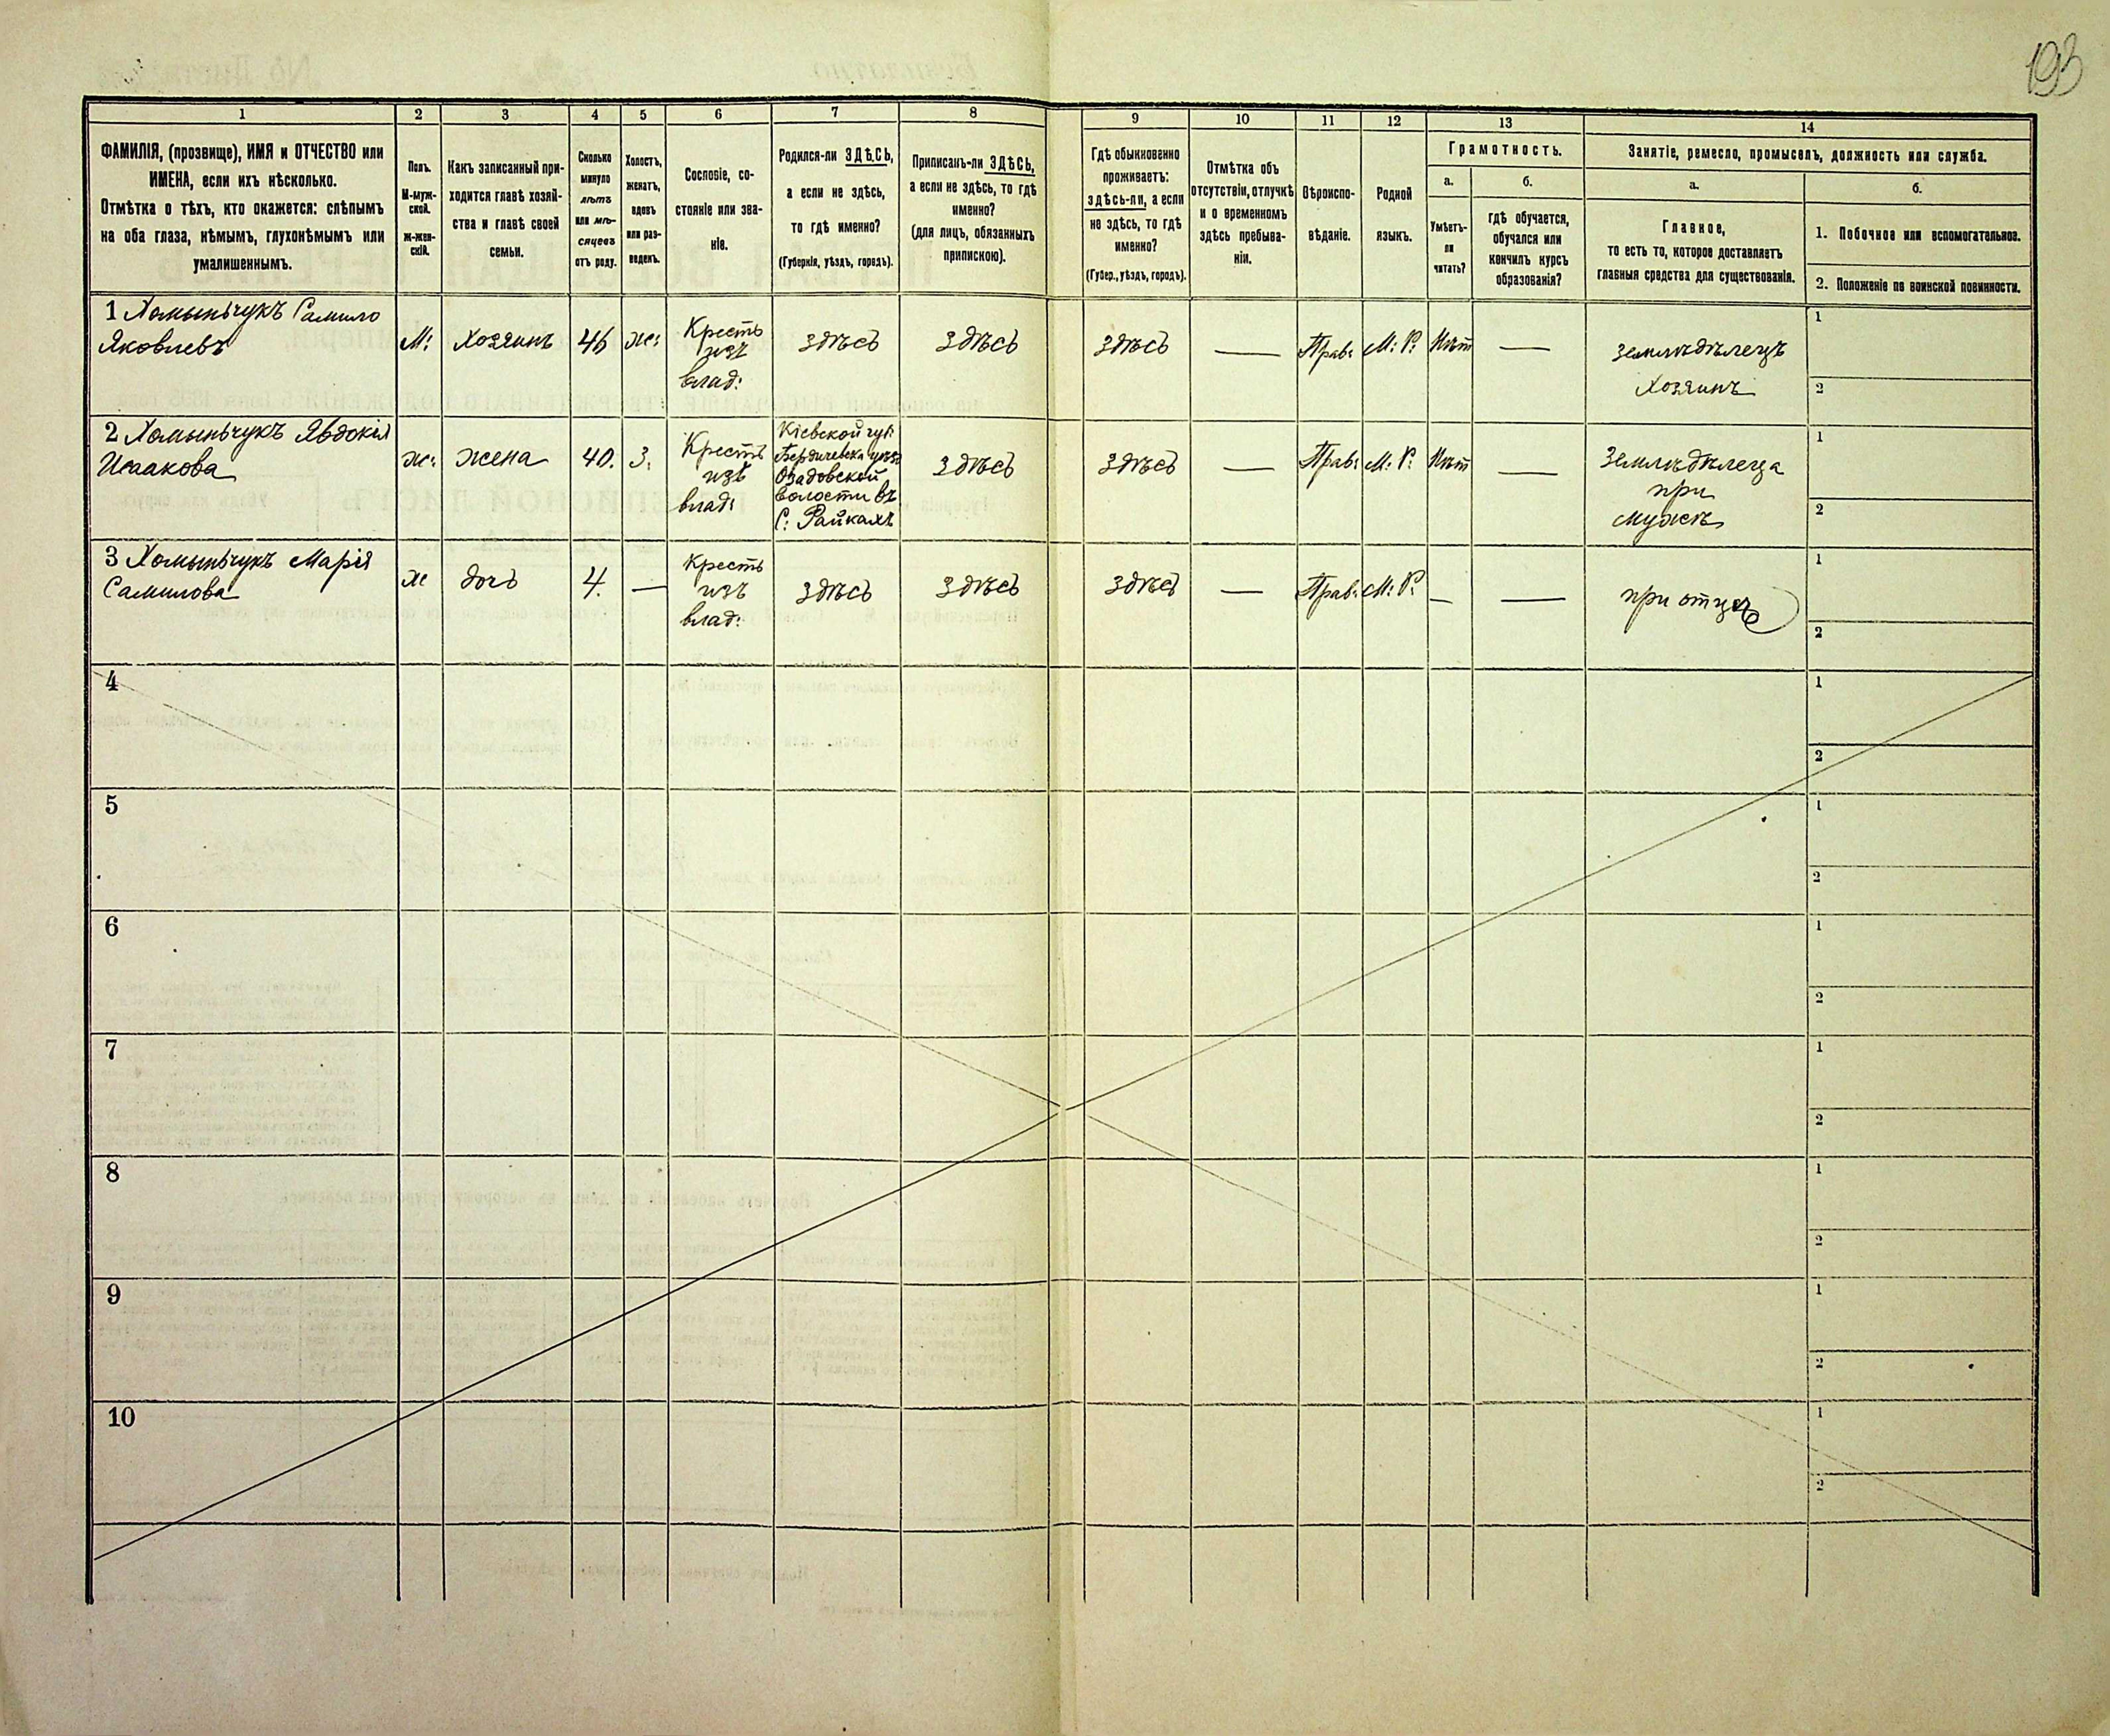 193
1
2
3
4
5
6
7
8
9
10
11
12
13
14
ФАМИЛІЯ, (прозвище), ИМЯ и ОТЧЕСТВО или
ИМЕНА, если ихъ нѣсколько.
Отмѣтка о тѣхъ, кто окажется: слѣпымъ
на оба глаза, нѣмымъ, глухонѣмымъ или
умалишеннымъ.
Полъ.
М-муж-
ской.
ж-жен-
скій.
Какъ записанный при-
ходится главѣ хозяй-
ства и главѣ своей
семьи.
Сколько
минуло
лѣтъ
или мѣ-
сяцевъ
отъ роду.
Холостъ,
женатъ,
вдовъ
или раз-
веденъ.
Сословіе, со-
стояніе или зва-
ніе.
Родился-ли ЗДѢСЬ,
а если не здѣсь,
то гдѣ именно?
(Губернія, уѣздъ, городъ).
Приписанъ-ли ЗДѢСЬ,
а если не здѣсь, то гдѣ
именно?
(для лицъ, обязанныхъ
припискою).
Гдѣ обыкновенно
проживаетъ:
здѣсь-ли, а если
не здѣсь, то гдѣ
именно?
(Губер., уѣздъ, городъ).
Отмѣтка объ
отсутствіи, отлучкѣ
и о временномъ
здѣсь пребыва-
ніи.
Вѣроиспо-
вѣданіе.
Родной
языкъ.
Грамотность.
а.
Умѣетъ-
ли
читать?
б.
гдѣ обучается,
обучался или
кончилъ курсъ
образованія?
Занятіе, ремесло, промыселъ, должность или служба.
а.
Главное,
то есть то, которое доставляетъ
главныя средства для существованія.
б.
1. Побочное или вспомогательное.
2. Положеніе по воинской повинности.
1 Хомыньчукъ Самило
Яковлевъ
М:
Хозяинъ
46
же:
Кресть
изъ
влад:
здѣсь
здѣсь
здѣсь
—
Прав:
М: Р:
Нѣт
—
земледѣлецъ
Хозяинъ
1
2
2 Хомыньчукъ Явдокія
Исаакова
же:
жена
40.
З.
Кресть
изъ
влад:
Кіевской губ:
Бердичевск. уѣз:
Озадовской
волости въ
С: Райкахъ
здѣсь
здѣсь
—
Прав:
М: Р:
Нѣт
—
Земледѣлеца
при
мужѣ
1
2
3 Хомыньчукъ Марія
Самилова
ж
дочь
4.
—
Кресть
изъ
влад:
здѣсь
здѣсь
здѣсь
—
Прав:
М: Р:
—
—
при отцѣ
1
2
4
1
2
5
1
2
6
1
2
7
1
2
8
1
2
9
1
2
10
1
2